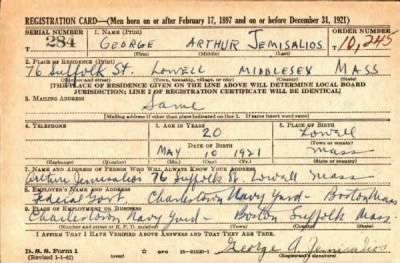 REGISTRATION CARD—(Men born on or after February 17, 1897 and on or before December 31, 1921)
SERIAL NUMBER 1. NAME (Print) ORDER NUMBER
284 GEORGE ARTHUR JEMISALIOS 10,245
(First) (Middle) (Last)
2. PLACE OF RESIDENCE (Print)
76 Suffolk St. LOWELL MIDDLESEX MASS
(Number and street) (Town, township, village, or city) (County) (State)
[THE PLACE OF RESIDENCE GIVEN ON THE LINE ABOVE WILL DETERMINE LOCAL BOARD
JURISDICTION; LINE 2 OF REGISTRATION CERTIFICATE WILL BE IDENTICAL]
3. MAILING ADDRESS
Same
[Mailing address if other than place indicated on line 2. If same insert word same]
4. TELEPHONE 5. AGE IN YEARS 6. PLACE OF BIRTH
20 Lowell
DATE OF BIRTH (Town or county)
MAY 10 1921 Mass
(Exchange) (Number) (Mo.) (Day) (Yr.) (State or country)
7. NAME AND ADDRESS OF PERSON WHO WILL ALWAYS KNOW YOUR ADDRESS
Arthur Jemisalios 76 Suffolk St Lowell Mass
8. EMPLOYER'S NAME AND ADDRESS
Federal Govt Charlestown Navy Yard - Boston Mass
9. PLACE OF EMPLOYMENT OR BUSINESS
Charlestown Navy Yard - Boston Suffolk Mass.
(Number and street or R. F. D. number) (Town) (County) (State)
I AFFIRM THAT I HAVE VERIFIED ABOVE ANSWERS AND THAT THEY ARE TRUE.
D. S. S. Form 1
(Revised 1-1-42) (over) George A. Jemisalios
(Registrant's signature)